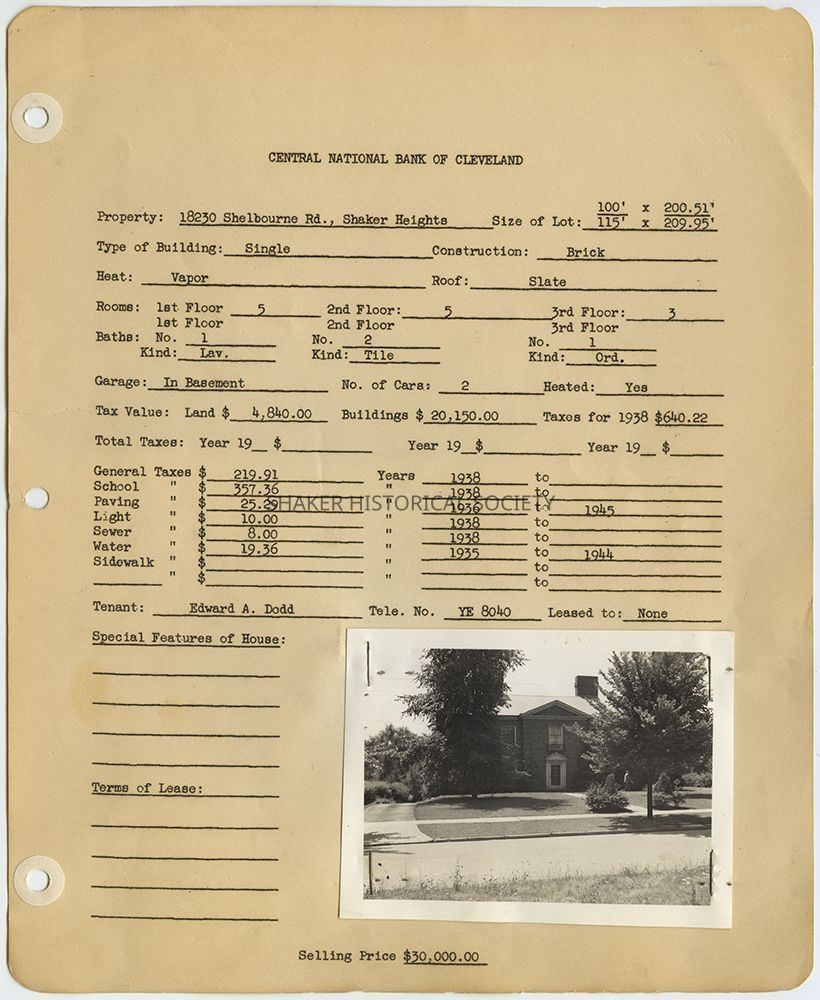 CENTRAL NATIONAL BANK OF CLEVELAND
Property: 18230 Shelbourne Rd., Shaker Heights Size of Lot: 100' x 200.51'
115' x 209.95'
Type of Building: Single Construction: Brick
Heat: Vapor Roof: Slate
Rooms: 1st Floor 5 2nd Floor: 5 3rd Floor: 3
1st Floor 2nd Floor 3rd Floor
Baths: No. 1 No. 2 No. 1
Kind: Lav. Kind: Tile Kind: Ord.
Garage: In Basement No. of Cars: 2 Heated: Yes
Tax Value: Land $ 4,840.00 Buildings $ 20,150.00 Taxes for 1938 $640.22
Total Taxes: Year 19__ $ Year 19__ $ Year 19__ $
General Taxes $ 219.91 Years 1938 to
School " $ 357.36 " 1938 to
Paving " $ 25.29 " 1936 to 1945
SHAKER HISTORICAL SOCIETY
Light " $ 10.00 " 1938 to
Sewer " $ 8.00 " 1938 to
Water " $ 19.36 " 1935 to 1944
Sidewalk " $ " to
" $ " to
Tenant: Edward A. Dodd Tele. No. YE 8040 Leased to: None
Special Features of House:
Terms of Lease:
Selling Price $30,000.00